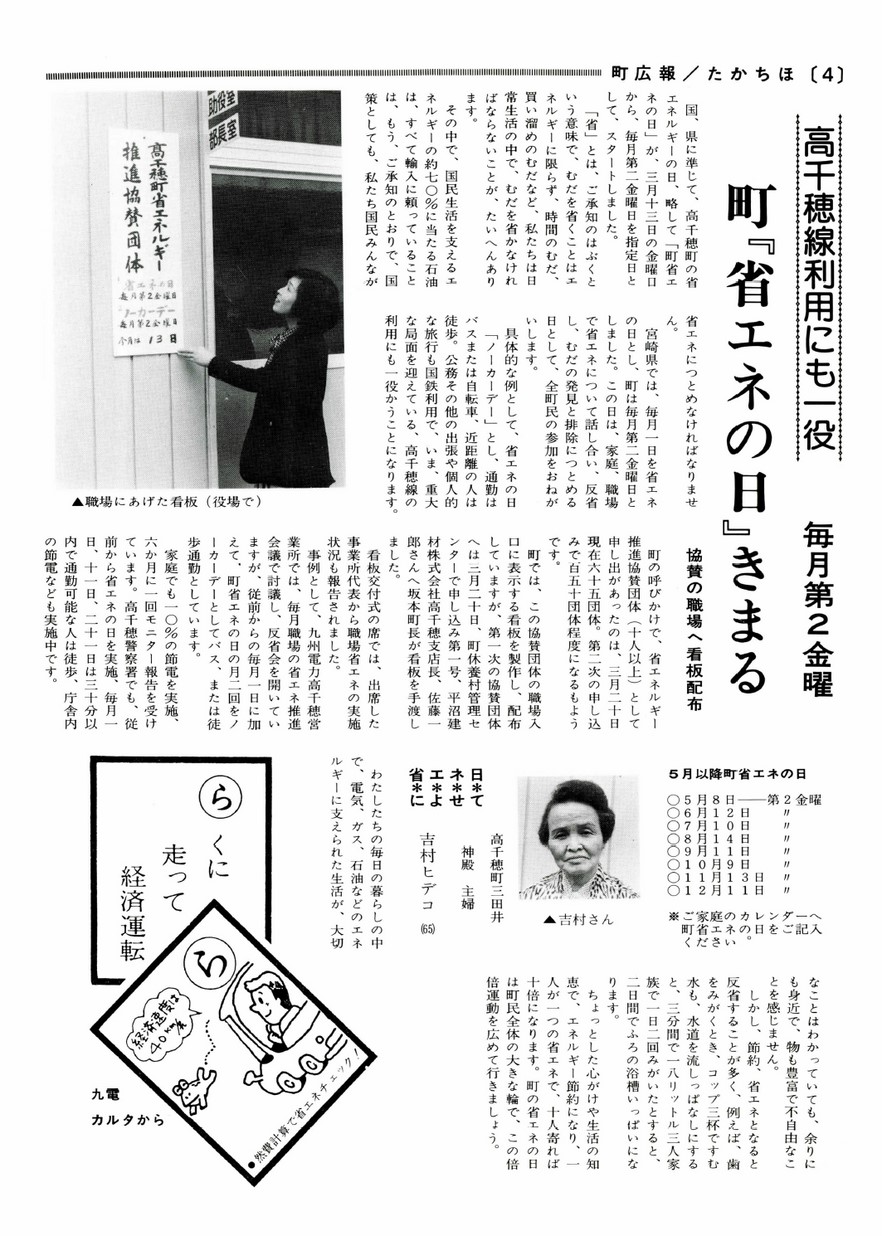 町広報／たかちほ〔4〕
高千穂線利用にも一役
毎月第2金曜
町『省エネの日』きまる
協賛の職場へ看板配布
国、県に準じて、高千穂町の省
エネルギーの日、略して「町省エ
ネの日」が、三月十三日の金曜日
から、毎月第二金曜日を指定日と
して、スタートしました。
「省」とは、ご承知のはぶくと
いう意味で、むだを省くことはエ
ネルギーに限らず、時間のむだ、
買い溜めのむだなど、私たちは日
常生活の中で、むだを省かなけれ
ばならないことが、たいへんあり
ます。
その中で、国民生活を支えるエ
ネルギーの約七〇％に当たる石油
は、すべて輸入に頼っていること
は、もう、ご承知のとおりで、国
策としても、私たち国民みんなが
省エネにつとめなければなりませ
ん。
宮崎県では、毎月一日を省エネ
の日とし、町は毎月第二金曜日と
しました。この日は、家庭、職場
で省エネについて話し合い、反省
し、むだの発見と排除につとめる
日として、全町民の参加をおねが
いします。
具体的な例として、省エネの日
「ノーカーデー」とし、通勤は
バスまたは自転車、近距離の人は
徒歩。公務その他の出張や個人的
な旅行も国鉄利用で、いま、重大
な局面を迎えている、高千穂線の
利用にも一役かうことになります。
町の呼びかけで、省エネルギー
推進協賛団体（十人以上）として
申し出があったのは、三月二十日
現在六十五団体。第二次の申し込
みで百五十団体程度になるもよう
です。
町では、この協賛団体の職場入
口に表示する看板を製作し、配布
していますが、第一次の協賛団体
へは三月二十日、町休養村管理セ
ンターで申し込み第一号、平沼建
材株式会社高千穂支店長、佐藤一
郎さんへ坂本町長が看板を手渡し
ました。
看板交付式の席では、出席した
事業所代表から職場省エネの実施
状況も報告されました。
事例として、九州電力高千穂営
業所では、毎月職場の省エネ推進
会議で討議し、反省会を開いてい
ますが、従前からの毎月一日に加
えて、町省エネの日の月二回をノ
ーカーデーとしてバス、または徒
歩通勤としています。
家庭でも一〇％の節電を実施、
六か月に一回モニター報告を受け
ています。高千穂警察署でも、従
前から省エネの日を実施、毎月一
日、十一日、二十一日は三十分以
内で通勤可能な人は徒歩、庁舎内
の節電なども実施中です。
助役室
部長室
高千穂町省エネルギー
推進協賛団体
省エネの日
毎月第2金曜日
ノーカーデー
毎月第2金曜日
今月は 13日
▲職場にあげた看板（役場で）
5月以降町省エネの日
○5月8日――第2金曜
○6月12日　〃
○7月10日　〃
○8月14日　〃
○9月11日　〃
○10月9日　〃
○11月13日　〃
○12月11日　〃
※ご家庭のカレンダーへ
町省エネの日をご記入
ください。
▲吉村さん
省＊に
エ＊よ
ネ＊せ
日＊て
高千穂町三田井
神殿　主婦
吉村ヒデコ(65)
わたしたちの毎日の暮らしの中
で、電気、ガス、石油などのエネ
ルギーに支えられた生活が、大切
なことはわかっていても、余りに
も身近で、物も豊富で不自由なこ
とを感じません。
しかし、節約、省エネとなると
反省することが多く、例えば、歯
をみがくとき、コップ三杯ですむ
水も、水道を流しっぱなしにする
と、三分間で一八リットル三人家
族で一日二回みがいたとすると、
二日間でふろの浴槽いっぱいにな
ります。
ちょっとした心がけや生活の知
恵で、エネルギー節約になり、一
人が一つの省エネで、十人寄れば
十倍になります。町の省エネの日
は町民全体の大きな輪で、この倍
倍運動を広めて行きましょう。
らくに
走って
経済運転
ら
経済速度は
40km/度
●燃費計算で省エネチェック！
九電
カルタから